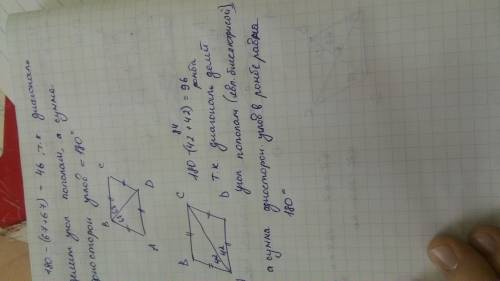 180 - (67+67) - 46 т.к диагональ
делит угол пополам, а сумма
односторон углов = 180°
B
C
67
67
A
D
84
180 - (42 + 42) = 96
ромба
т к диагональ делит
угол пополам (явл. биссектрисой)
B
C
42
42
D
а сумма односторон углов в ромбе равна
180°